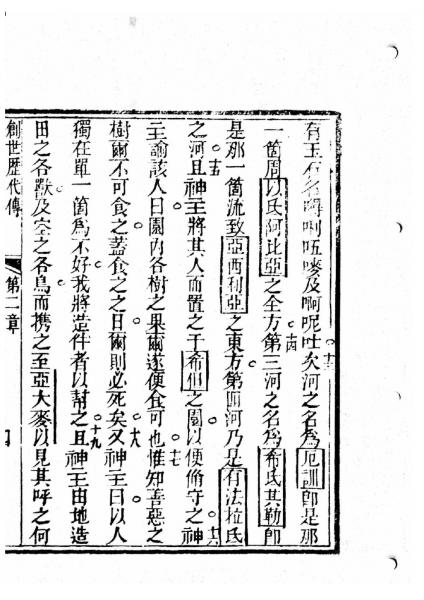 有玉石名嘚喇�Ꮞ嘜及啊呢吐次河之名爲厄訓卽是那十三
一箇周以氏阿比亞之全方第三河之名爲希氏其勒卽十四
是那一箇流致亞西利亞之東方第四河乃是有法拉氏
之河且神主將其人而置之于希但之園以便脩守之神十五十六
主諭該人曰園內各樹之果爾遂便食可也惟知善惡之十七
樹爾不可食之蓋食之之日爾則必死矣又神主曰以人十八
獨在單一箇爲不好我將造伴者以幇之且神主由地造十九
田之各獸及空之各鳥而携之至亞大麥以見其呼之何
創世歷代傳 第二章